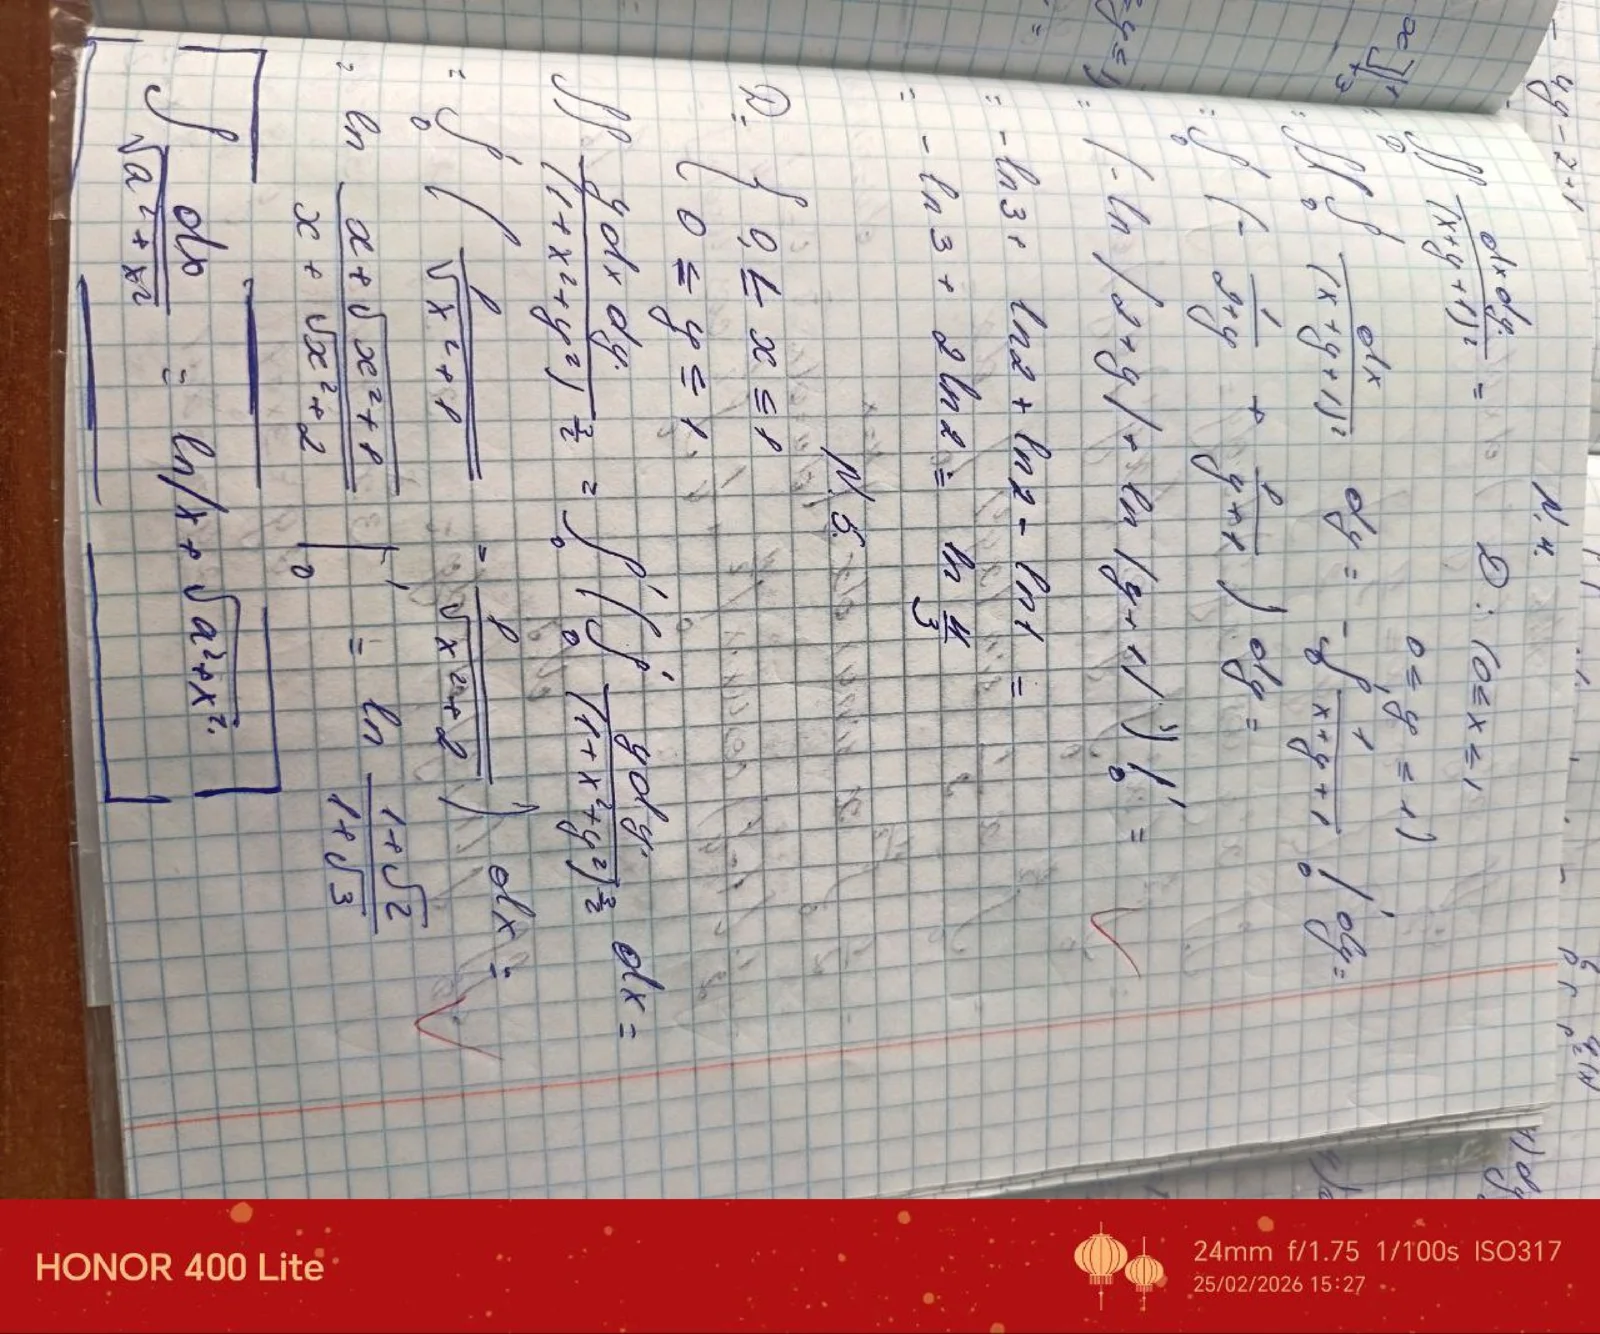 N. 4.
∬_D dx dy / (x+y+1)² =   D: (0 ≤ x ≤ 1
0 ≤ y ≤ 1)
= ∫∫₀ dx / (x+y+1)² dy = -∫₀¹ 1 / (x+y+1) |₀¹ dy =
= ∫₀¹ (- 1/(2+y) + 1/(y+1)) dy =
= (-ln|2+y| + ln|y+1|)|₀¹ =
= -ln3 + ln2 + ln2 - ln1 =
= -ln3 + 2ln2 = ln 4/3
N. 5.
D: { 0 ≤ x ≤ 1
0 ≤ y ≤ 1
∬ y dx dy / (1+x²+y²)^(3/2) = ∫₀¹ (∫₀¹ y dy / (1+x²+y²)^(3/2)) dx =
= ∫₀¹ (1/√(x²+1) - 1/√(x²+2)) dx =
= ln (x+√(x²+1)) / (x+√(x²+2)) |₀¹ = ln (1+√2)/(1+√3)
∫ dx / √(a²+x²) = ln|x+√(a²+x²)
HONOR 400 Lite
24mm f/1.75 1/100s ISO317
25/02/2026 15:27